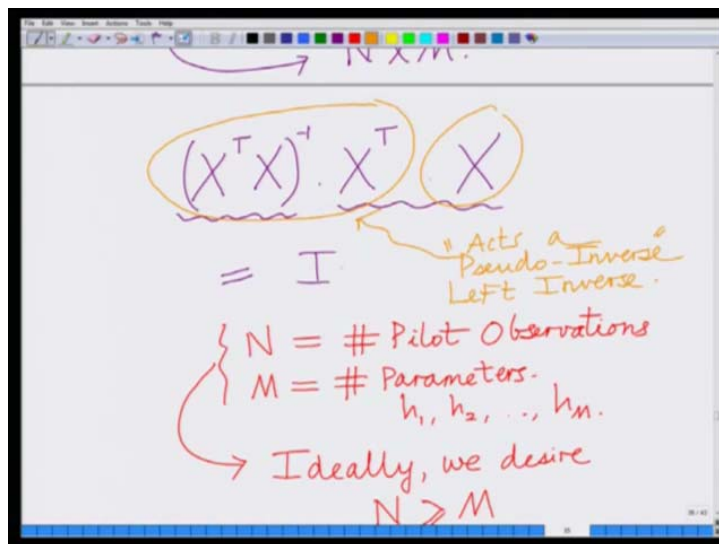 File Edit View Insert Actions Tools Help
N X M.
(XᵀX)⁻¹ . Xᵀ . X
= I
"Acts a
Pseudo-Inverse"
Left Inverse.
N = # Pilot Observations
M = # Parameters.
h₁, h₂, .., hM.
Ideally, we desire
N ≥ M